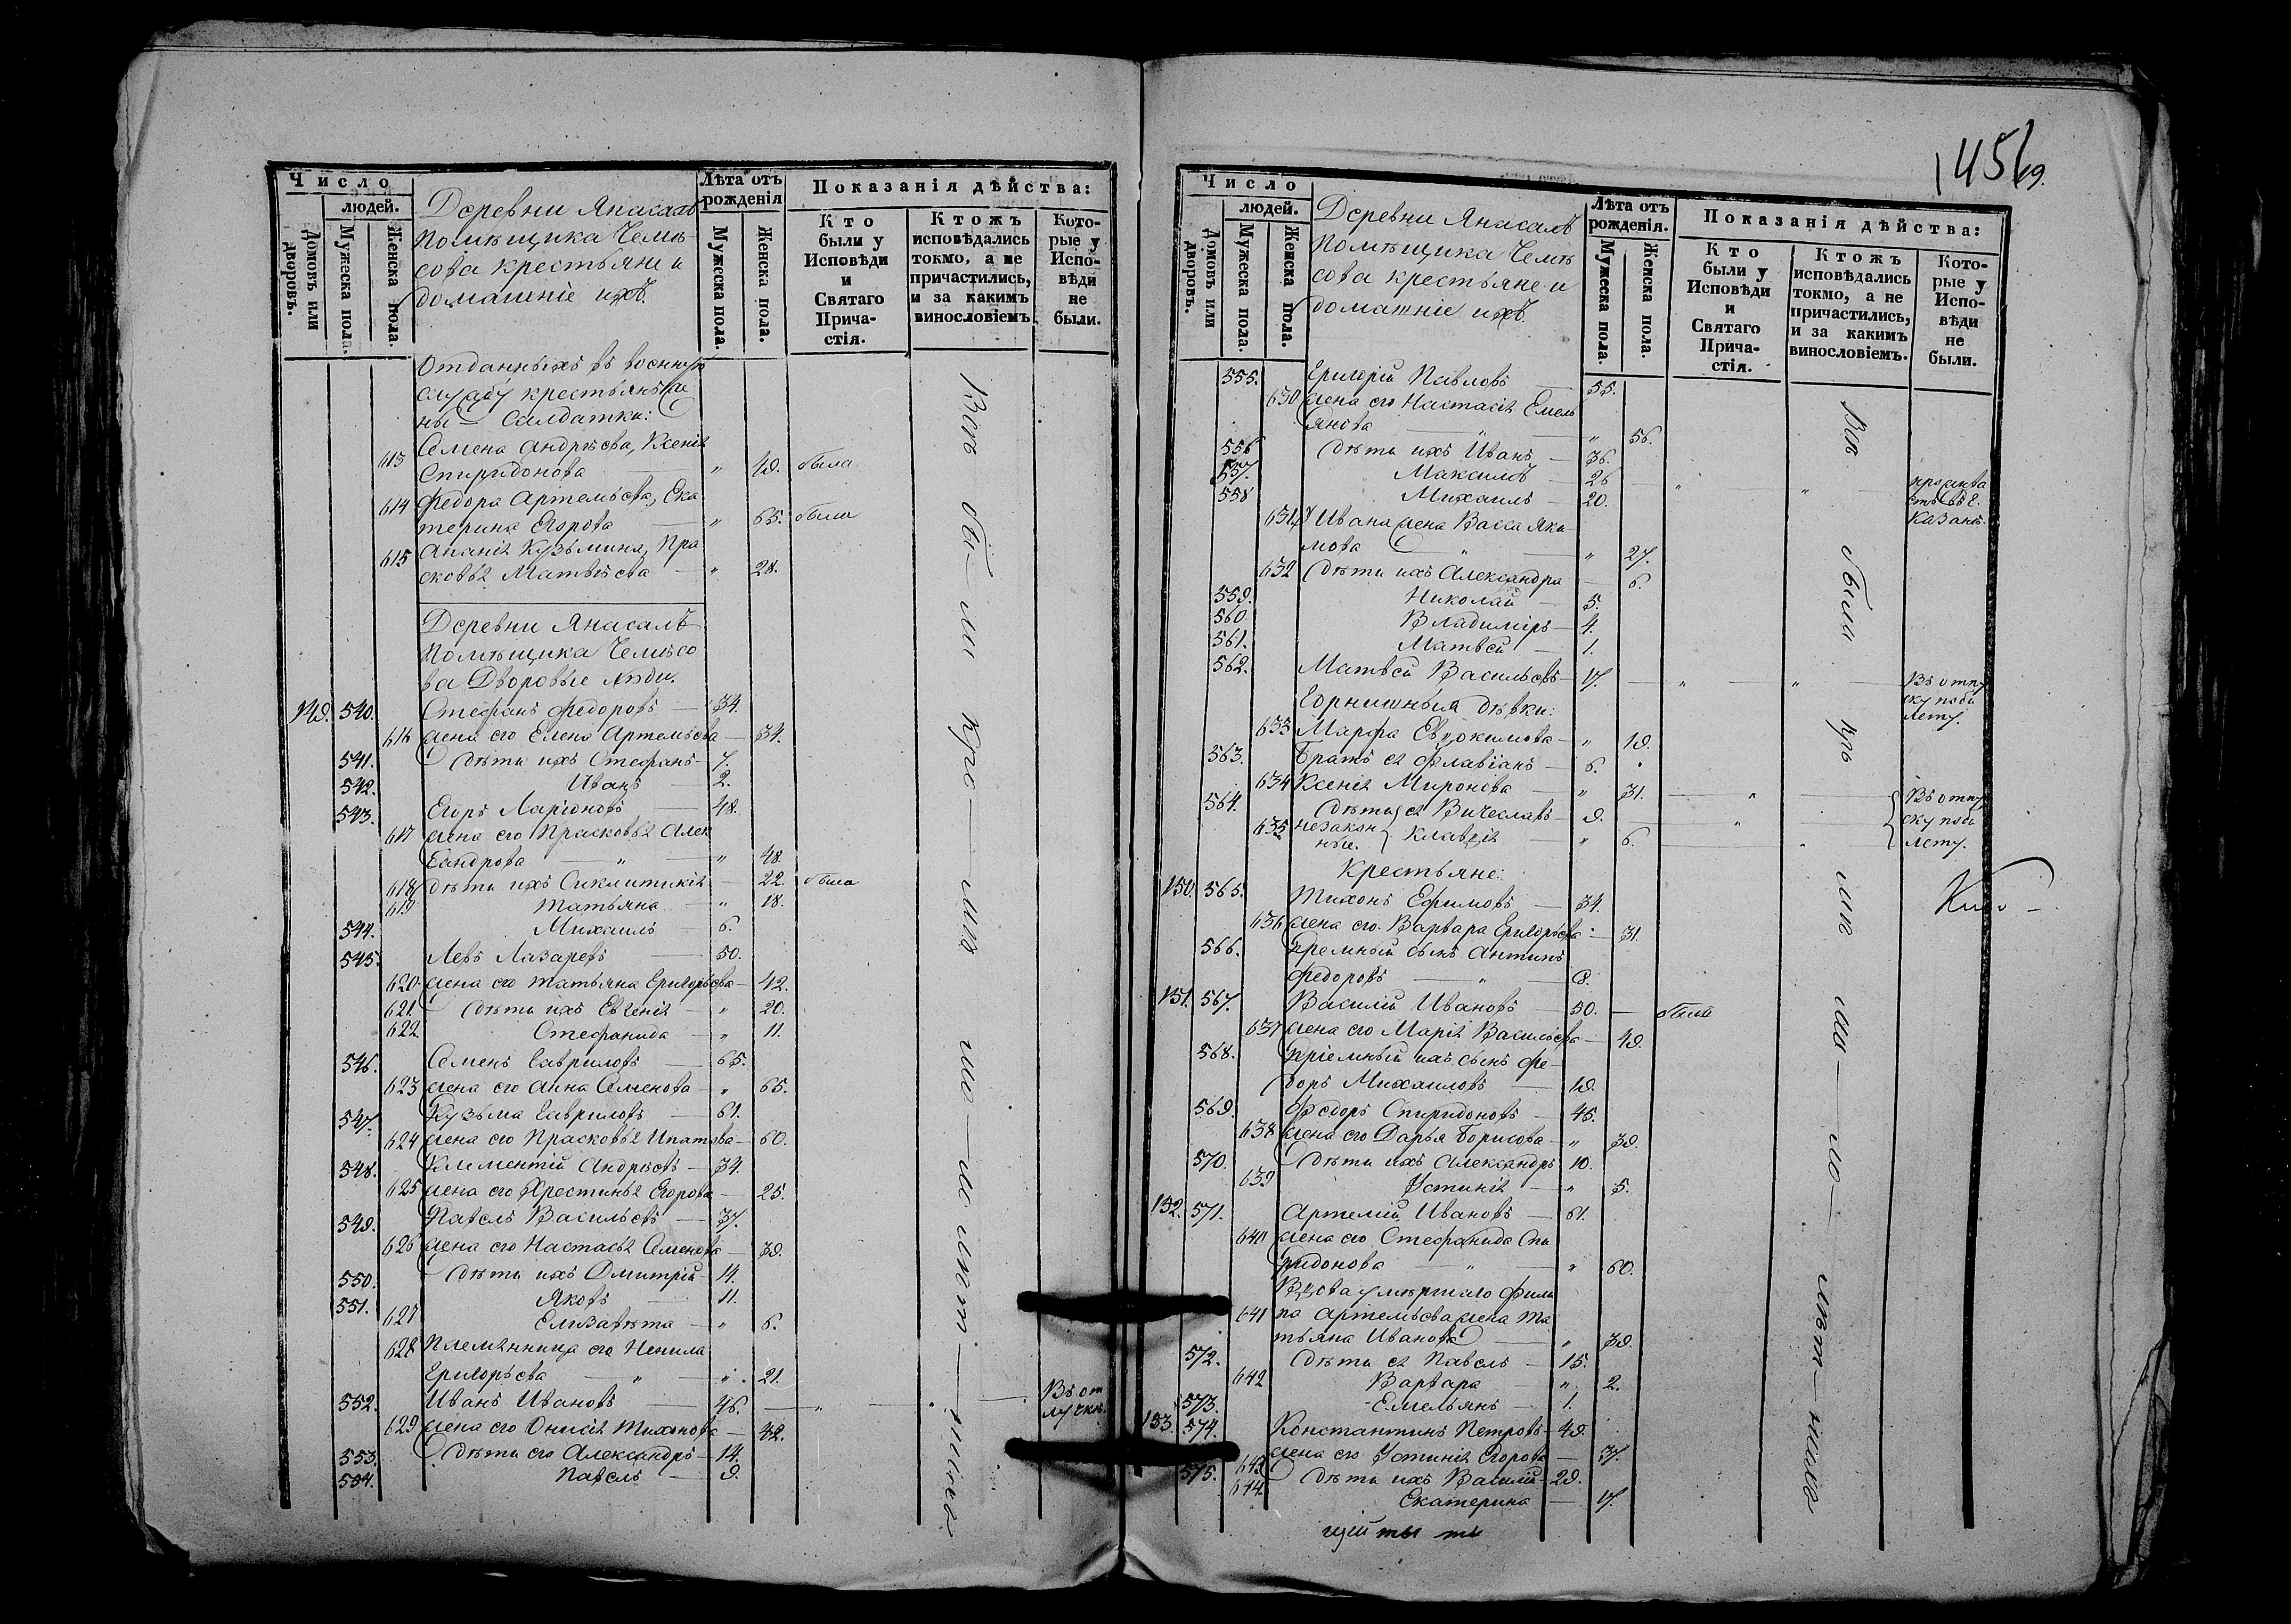 Число
людей.
Домовъ или дворовъ.
Мужеска пола.
Женска пола.
Деревни Янасалъ
помѣщика Чемѣ-
сова крестьяне и
домашніе ихъ.
Лѣта отъ рожденія
Мужеска пола.
Женска пола.
Показанія дѣйства:
Кто были у Исповѣди и Святаго Прича-стія.
Ктожъ исповѣдались токмо, а не причастились, и за какимъ винословіемъ.
Кото-рые у Испо-вѣди не были.
Отданныхъ въ военную
службу крестьянъ же
ны Салдатки:
Семена Андрѣева, Ксенія
613 Спиридонова — " 49. была
614 Федора Артемьева, Ека
терина Егорова — " 65. была
615 Ананія Кузьмина, Пра
сковья Матвѣева — " 28.
Деревни Янасалъ
Помѣщика Чемѣсо
ва Дворовые люди.
149. 540. Стефанъ Федоровъ — 34.
616 жена его Елена Артемьева — 34.
541. Дѣти ихъ Стефанъ — 7.
542. Иванъ — 2.
543. Егоръ Ларіоновъ — 48.
617 жена его Прасковья Алек
сандрова — " — " 48.
618 дѣти ихъ Сиклитикія — 22. была
619 Татьяна — " 18.
544. Михаилъ — 6.
545. Левъ Лазаревъ — 50.
620. жена его Татьяна Григорьева — 42.
621. дѣти ихъ Евгенія — " 20.
622. Стефанида — " 11.
546. Семенъ Гавриловъ — 65.
623 жена его Анна Семенова — " 65.
547. Кузьма Гавриловъ — 61.
624 жена его Прасковья Ипатова — 60.
548. Климентій Андрѣевъ — 34.
625 жена его Хрестинья Егорова — 25.
549. Павелъ Васильевъ — 37.
626 жена его Настасья Семенова — 39.
550. дѣти ихъ Дмитрій — 14.
551. Яковъ — 11.
627 Елизавета — " 6.
628 Племянница его Ненила
Григорьева — " — " 21.
552. Иванъ Ивановъ — 46. — " — Въ от
лучкѣ.
629 жена его Онисія Тихонова — 42.
553. Дѣти его Александръ — 14.
554. Павелъ — 9.
1456
69.
Число
людей.
Домовъ или дворовъ.
Мужеска пола.
Женска пола.
Деревни Янасалъ
Помѣщика Чемѣ
сова крестьяне и
домашніе ихъ.
Лѣта отъ рожденія.
Мужеска пола.
Женска пола.
Показанія дѣйства:
Кто были у Исповѣди и Святаго Прича-стія.
Ктожъ исповѣдались токмо, а не причастились, и за какимъ винословіемъ.
Кото-рые у Испо-вѣди не были.
555. Григорій Павловъ — 55.
630 жена его Настасія Емель
янова — " — " 56.
556 Дѣти ихъ Иванъ — 36.
557. Максимъ — 26
558 Михаилъ — 20.
Казань.
631 У Ивана жена Васса Яки
мова — " — " 27.
632 Дѣти ихъ Александра — 6.
559. Николай — 5.
560. Владиміръ — 4.
561. Матвей — 1.
562. Матвей Васильевъ — 17. — " — " — Въ отпу
ску по би
лету.
Горнишныя дѣвки:
633 Марфа Евдокимова — " 19.
563. Братъ ея Флавіанъ — 6.
634 Ксенія Миронова — " 31. — " — Въ отпу
564. Дѣти ея Вичеславъ — 9. — " — ску по би
635 незакон ные. Клавдія — " 6. — " — лету.
Крестьяне:
150. 565. Тихонъ Ефимовъ — 34.
636 жена его Варвара Григорьева — 31.
566. Премный сынъ Антипъ
Федоровъ — " — 8.
151. 567. Василій Ивановъ — 50. — былъ
637 жена его Марія Васильева — 49.
568. Пріемный ихъ сынъ Фе-
доръ Михаиловъ — 19.
569. Федоръ Спиридоновъ — 45.
638 жена его Дарья Борисова — " 39.
570. Дѣти ихъ Александръ 10.
639 Устинія — " 5.
152. 571. Артемій Ивановъ — 61.
640 жена его Стефанида Спи
ридонова — " — " 60.
Вдова умершаго Фили
641 па Артемьева жена Та
тьяна Иванова — " 39.
572. Дѣти ея Павелъ — 15.
642 Варвара — " 2.
573. Емельянъ — 1.
153. 574. Константинъ Петровъ — 49.
643 жена его Устинія Егорова — 37.
575. Дѣти ихъ Василій — 29.
644. Екатерина — 17.